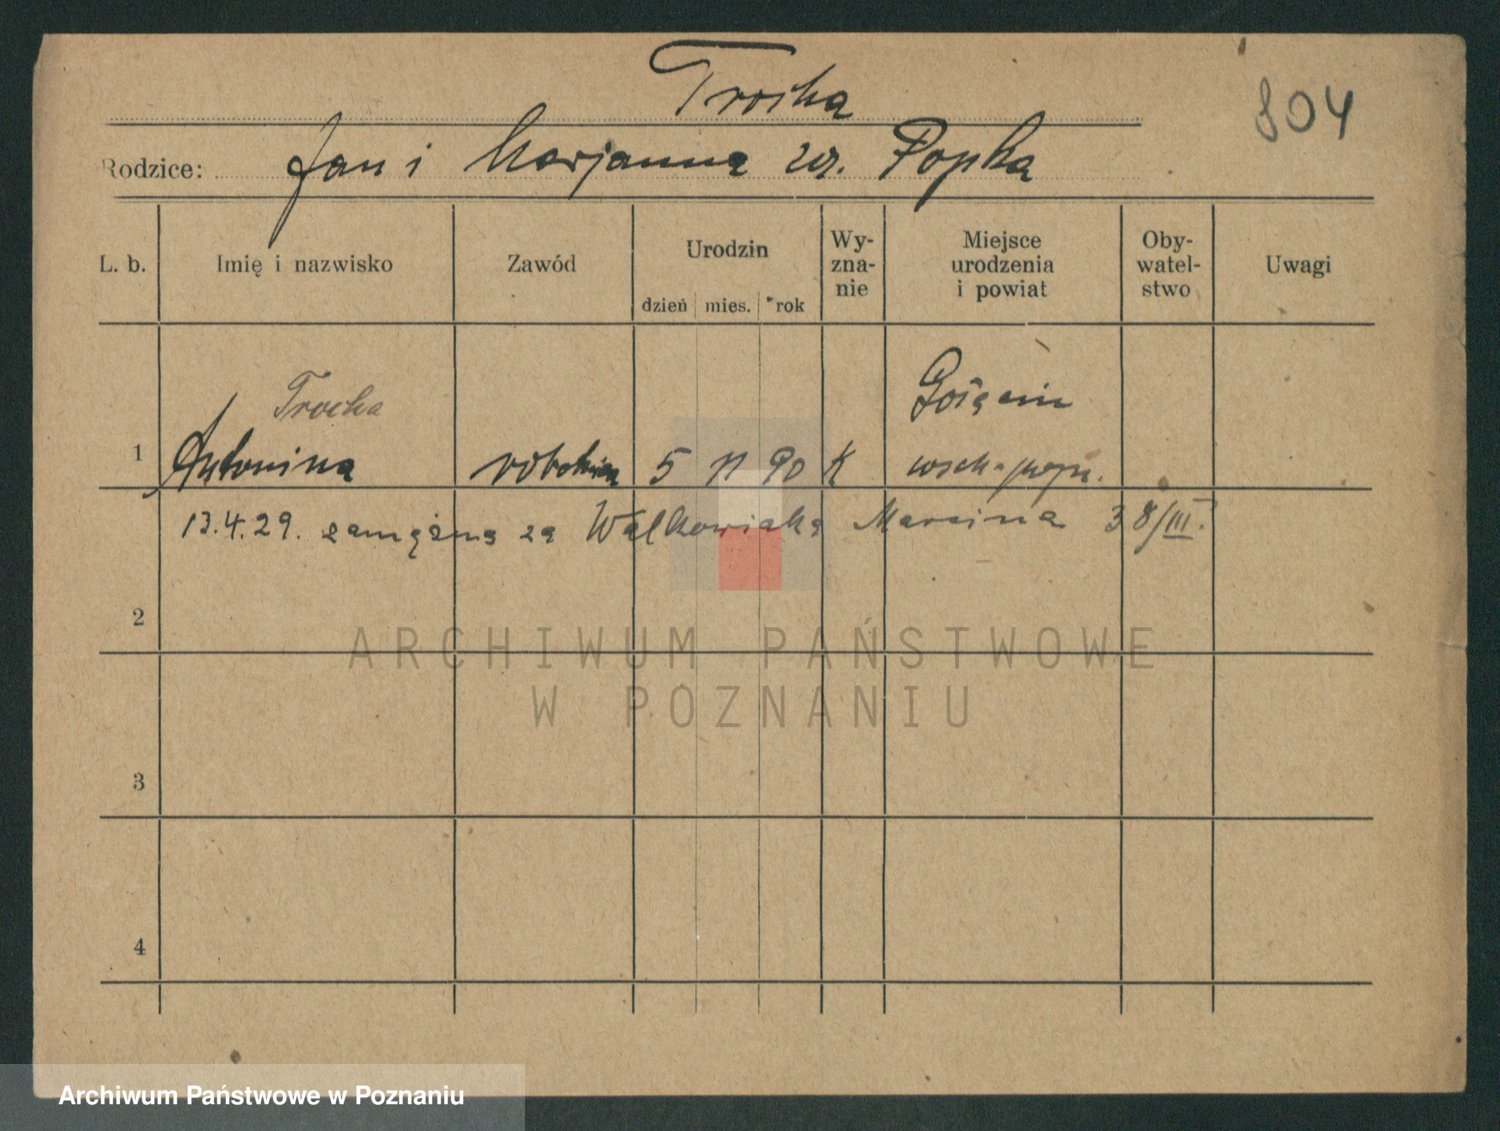 Trocha
804
Rodzice: Jan i Marjanna ur. Popka
L. b. Imię i nazwisko Zawód Urodzin dzień mies. rok Wy-zna-nie Miejsce urodzenia i powiat Oby-watel-stwo Uwagi
Trocha
1 Antonina robotnica 5 11 90 K
13.4.29. zamężna za Walkowiaka Marcina 38/III.
2
3
4
ARCHIWUM PAŃSTWOWE
W POZNANIU
Archiwum Państwowe w Poznaniu